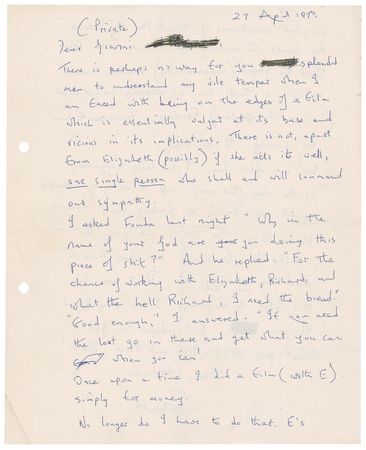 27 April 197
(Private)
Dear
There is perhaps no way for you splendid
men to understand my vile temper when I
am faced with being on the edges of a film
which is essentially vulgar at its base and
vicious in its implications. There is not, apart
from Elizabeth (possibly) if she acts it well,
one single person who shall and will command
our sympathy.
I asked Fonda last night "Why in the
name of your God are you doing this
piece of shit?" And he replied. "For the
chance of working with Elizabeth, Richard, and
what the hell Richard, I need the bread."
"Good enough," I answered. "If you need
the loot go in there and get what you can
when you can'.
Once upon a time I did a film (with E)
simply for money.
No longer do I have to do that. E's